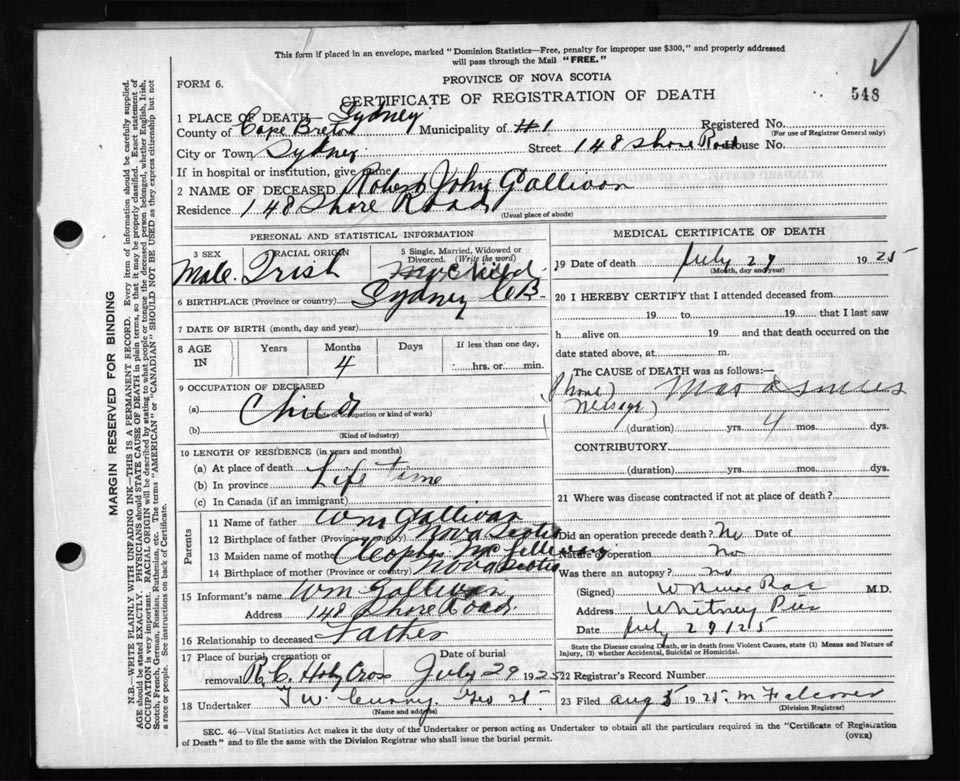 This form if placed in an envelope, marked "Dominion Statistics—Free, penalty for improper use $300," and properly addressed
will pass through the Mail "FREE."
FORM 6.
PROVINCE OF NOVA SCOTIA
CERTIFICATE OF REGISTRATION OF DEATH
548
1 PLACE OF DEATH— Sydney
County of Cape Breton Municipality of #1 Registered No.
(For use of Registrar General only)
City or Town Sydney Street 148 Shore Road House No.
If in hospital or institution, give name
2 NAME OF DECEASED Robert John Gallivan
Residence 148 Shore Road
(Usual place of abode)
PERSONAL AND STATISTICAL INFORMATION
3 SEX Male
RACIAL ORIGIN Irish
5 Single, Married, Widowed or Divorced. (Write the word) Child
6 BIRTHPLACE (Province or country) Sydney C B
7 DATE OF BIRTH (month, day and year)
8 AGE IN Years Months 4 Days If less than one day, hrs. or min.
9 OCCUPATION OF DECEASED
(a) Child
(b)
(Kind of industry)
10 LENGTH OF RESIDENCE (in years and months)
(a) At place of death
(b) In province Life Time
(c) In Canada (if an immigrant)
Parents
11 Name of father Wm Gallivan
12 Birthplace of father (Province or country) Nova Scotia
13 Maiden name of mother
14 Birthplace of mother (Province or country) Nova Scotia
15 Informant's name Wm Gallivan
Address 148 Shore Road
16 Relationship to deceased Father
17 Place of burial cremation or removal R.C. Holy Cross
Date of burial July 29 1925
18 Undertaker
(Name and address)
MEDICAL CERTIFICATE OF DEATH
19 Date of death July 29 1925
(Month, day and year)
20 I HEREBY CERTIFY that I attended deceased from
19 to 19 that I last saw
h alive on 19 and that death occurred on
date stated above, at m.
The CAUSE of DEATH was as follows:—
(Phone Message)
(duration) yrs. 4 mos. dys.
CONTRIBUTORY
(duration) yrs. mos. dys.
21 Where was disease contracted if not at place of death?
Did an operation precede death? No Date of
Nature of operation No
Was there an autopsy? no
(Signed) M.D.
Address Whitney Pier
Date July 29/25
State the Disease causing Death, or in death from Violent Causes, state (1) Means and Nature of
Injury, (2) whether Accidental, Suicidal or Homicidal.
22 Registrar's Record Number
23 Filed Aug 5 1925 M Falconer
(Division Registrar)
SEC. 46—Vital Statistics Act makes it the duty of the Undertaker or person acting as Undertaker to obtain all the particulars required in the "Certificate of Registration
of Death" and to file the same with the Division Registrar who shall issue the burial permit.
(OVER)
MARGIN RESERVED FOR BINDING
N.B.—WRITE PLAINLY WITH UNFADING INK—THIS IS A PERMANENT RECORD. Every item of information should be carefully supplied.
AGE should be stated EXACTLY. PHYSICIANS should STATE CAUSE OF DEATH in plain terms, so that it may be properly classified. Exact statement of
OCCUPATION is very important. RACIAL ORIGIN will be described by stating to what people or tongue the deceased person belonged, whether English, Irish,
Scotch, French, German, Russian, Ruthenian, etc. The terms "AMERICAN" or "CANADIAN" SHOULD NOT BE USED as they express citizenship but not
a race or people. See instructions on back of Certificate.